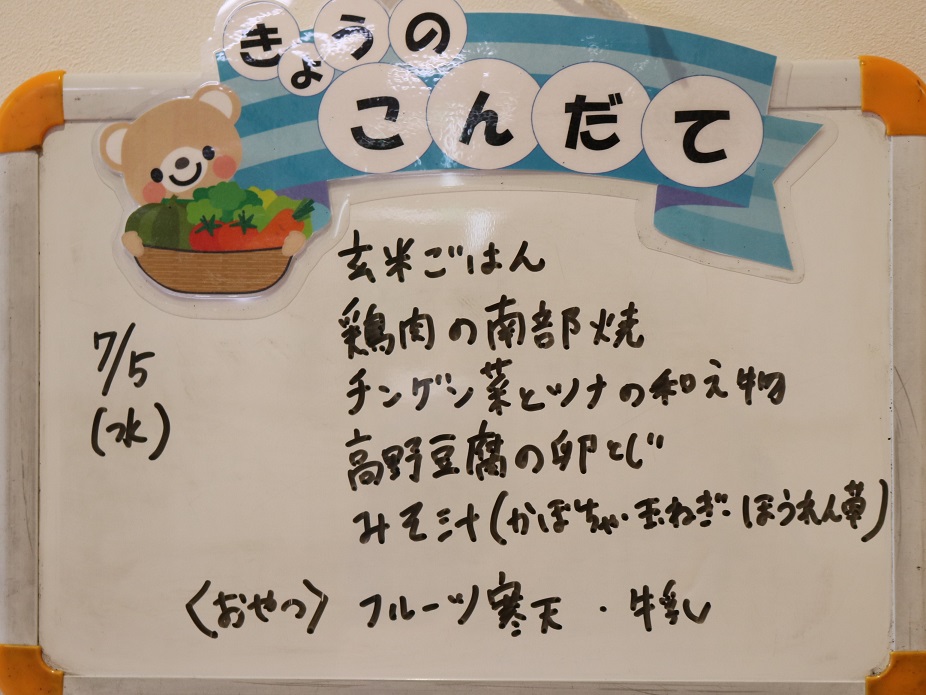 きょうの
こんだて
7/5
(水)
玄米ごはん
鶏肉の南部焼
チンゲン菜とツナの和え物
高野豆腐の卵とじ
みそ汁(かぼちゃ・玉ねぎ・ほうれん草)
〈おやつ〉 フルーツ寒天・牛乳